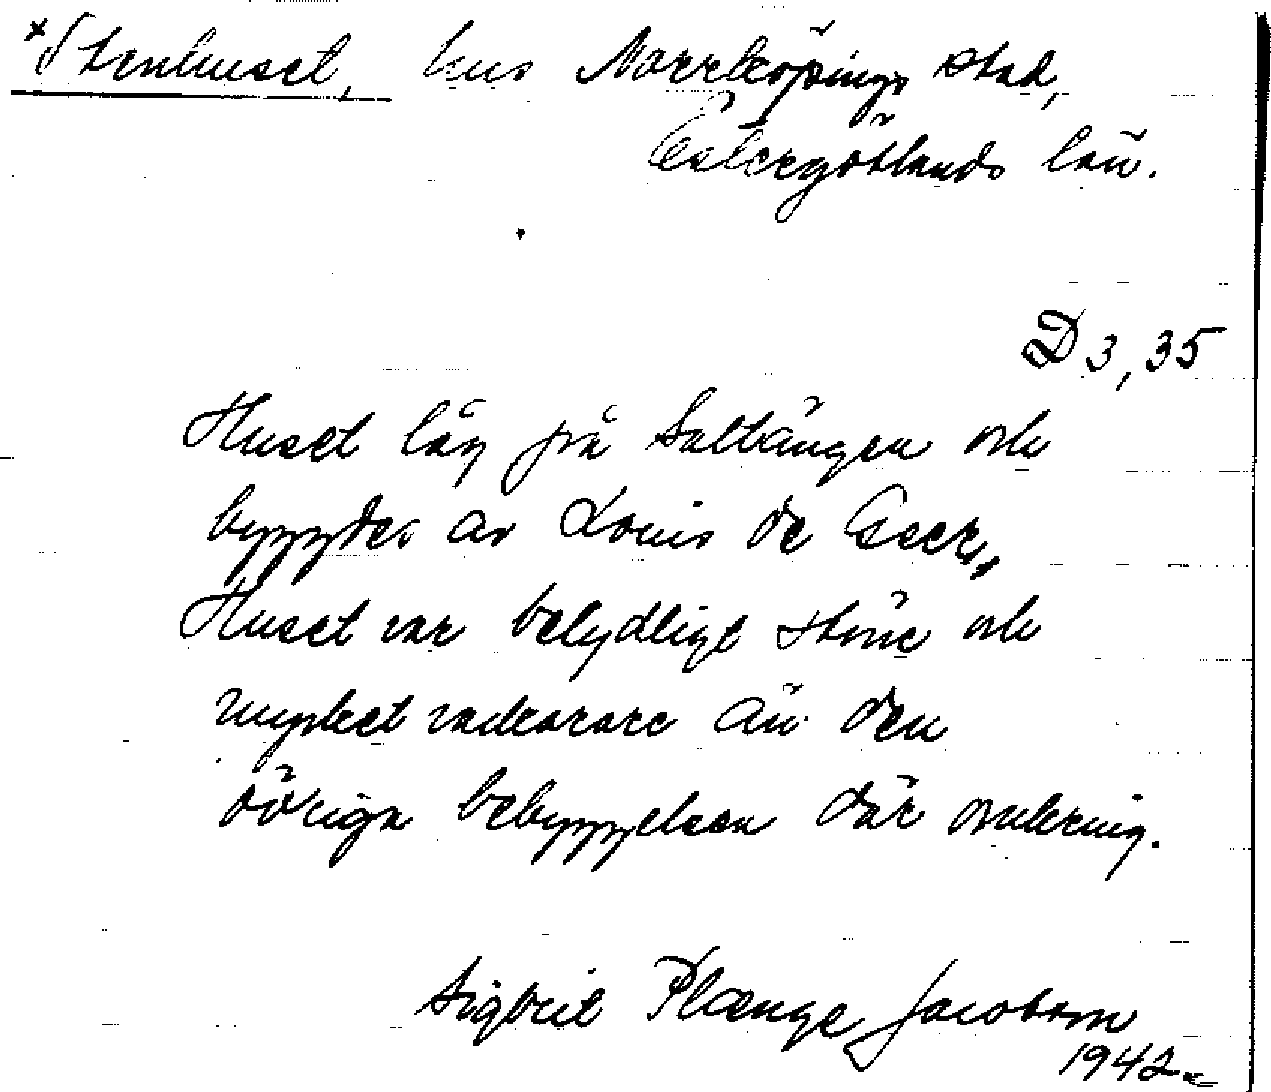 *Stenhuset, hus Norrköpings stad,
Östergötlands län.
D 3, 35
Huset låg på Saltängen och
byggdes av Louis de Geer,
Huset var betydligt större och
mycket vackrare än den
övriga bebyggelsen där omkring.
Sigbrit Plænge Jacobson
1942